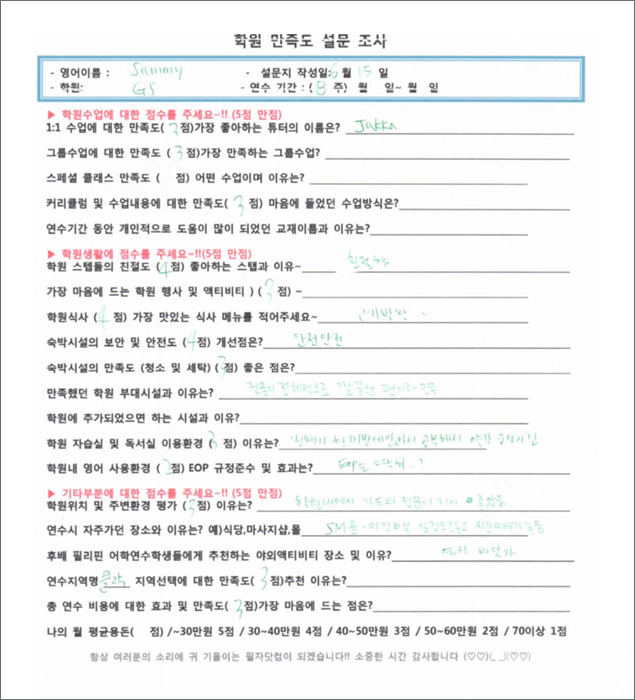 학원 만족도 설문 조사
- 영어이름 : Sammy - 설문지 작성일:6 월 15 일
- 학원: GS - 연수 기간 : (8 주) 월 일~ 월 일
▶ 학원수업에 대한 점수를 주세요~!! (5점 만점)
1:1 수업에 대한 만족도( 3점)가장 좋아하는 튜터의 이름은? Jakka
그룹수업에 대한 만족도 ( 3점)가장 만족하는 그룹수업?
스페셜 클래스 만족도 ( 점) 어떤 수업이며 이유는?
커리큘럼 및 수업내용에 대한 만족도( 3 점) 마음에 들었던 수업방식은?
연수기간 동안 개인적으로 도움이 많이 되었던 교재이름과 이유는?
▶ 학원생활에 점수를 주세요~!!(5점 만점)
학원 스텝들의 친절도 (4점) 좋아하는 스탭과 이유~ 친절함
가장 마음에 드는 학원 행사 및 액티비티 ) ( 3점) ~
학원식사 (4 점) 가장 맛있는 식사 메뉴를 적어주세요~ 고기반찬 ~
숙박시설의 보안 및 안전도 (4점) 개선점은? 안전안전
숙박시설의 만족도 (청소 및 세탁) (3점) 좋은 점은?
만족했던 학원 부대시설과 이유는? 전체적으로 깔끔한 편이라
학원에 추가되었으면 하는 시설과 이유?
학원 자습실 및 독서실 이용환경 (3 점) 이유는? 공부해서 약간
학원내 영어 사용환경 ( 3점) EOP 규정준수 및 효과는? EOP는
▶ 기타부분에 대한 점수를 주세요~!! (5점 만점)
학원위치 및 주변환경 평가 (3점) 이유는? 학원내에
연수시 자주가던 장소와 이유는? 예)식당,마사지샵,몰 SM몰
후배 필리핀 어학연수학생들에게 추천하는 야외액티비티 장소 및 이유? 역시 바닷가
연수지역명 클락 지역선택에 대한 만족도( 3점)추천 이유는?
총 연수 비용에 대한 효과 및 만족도( 3점)가장 마음에 드는 점은?
나의 월 평균용돈( 점) /~30만원 5점 / 30~40만원 4점 / 40~50만원 3점 / 50~60만원 2점 / 70이상 1점
항상 여러분의 소리에 귀 기울이는 필자닷컴이 되겠습니다!! 소중한 시간 감사합니다 (♡♡)(_ _)(♡♡)